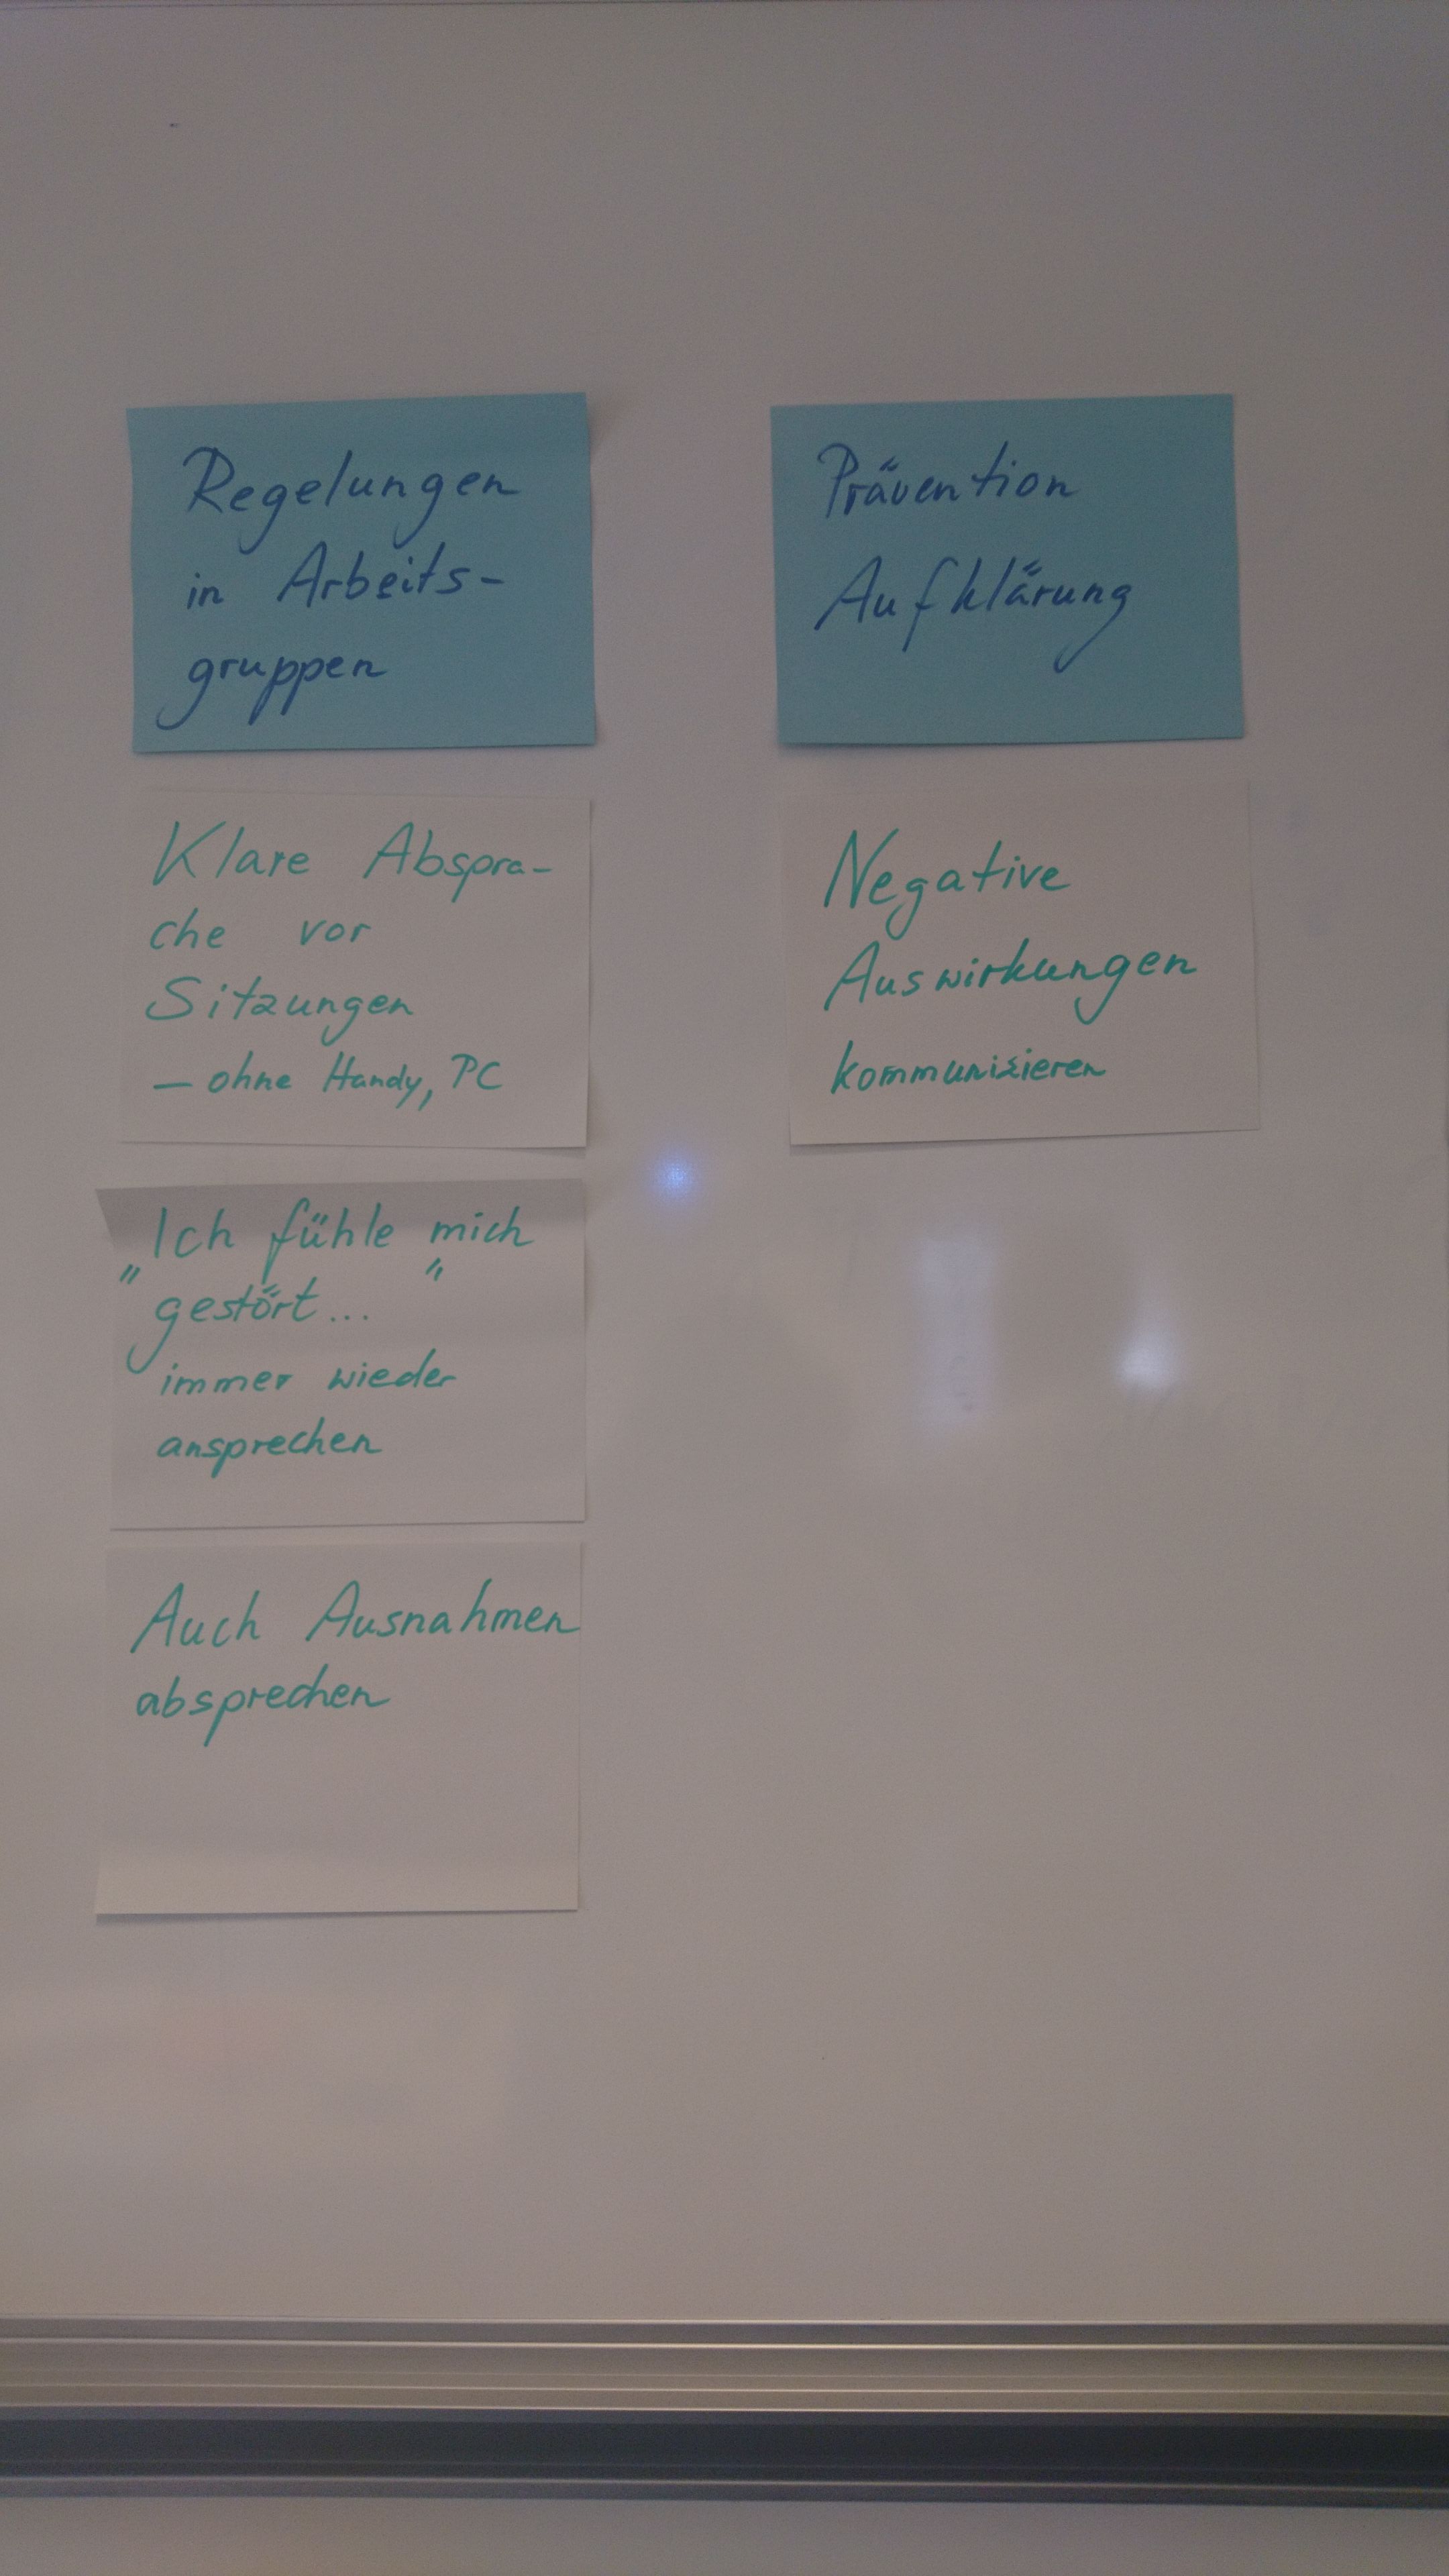 Regelungen
in Arbeits-
gruppen
Klare Abspra-
che vor
Sitzungen
– ohne Handy, PC
„Ich fühle mich
gestört..."
immer wieder
ansprechen
Auch Ausnahmen
absprechen
Prävention
Aufklärung
Negative
Auswirkungen
kommunizieren